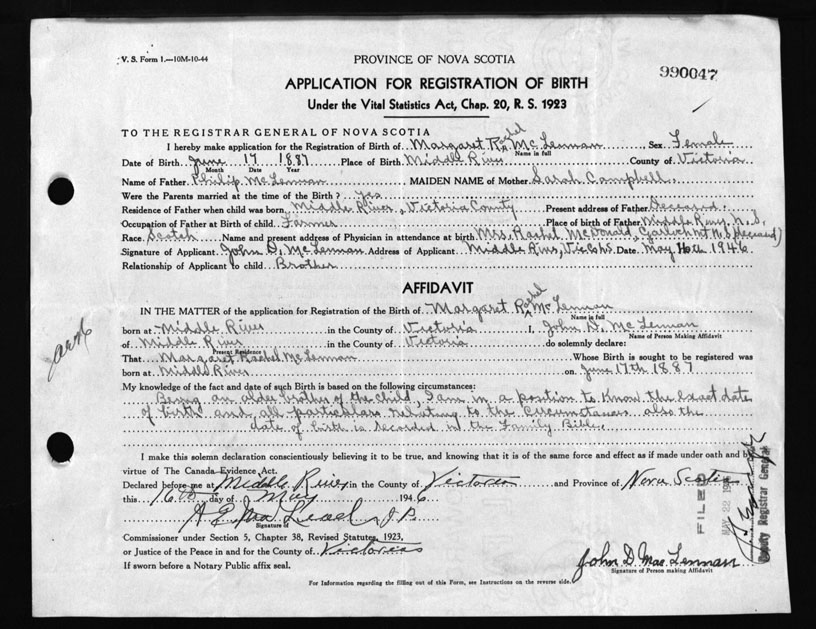 V. S. Form 1.—10M-10-44
PROVINCE OF NOVA SCOTIA
990047
APPLICATION FOR REGISTRATION OF BIRTH
Under the Vital Statistics Act, Chap. 20, R. S. 1923
TO THE REGISTRAR GENERAL OF NOVA SCOTIA
I hereby make application for the Registration of Birth of Margaret Rachel McLennan Sex Female
Name in full
Date of Birth June 17 1887 Place of Birth Middle River County of Victoria
Month Date Year
Name of Father Philip McLennan MAIDEN NAME of Mother Sarah Campbell
Were the Parents married at the time of the Birth? Yes
Residence of Father when child was born Middle River, Victoria County Present address of Father Deceased
Occupation of Father at Birth of child Farmer Place of birth of Father Middle River, N.S.
Race Scotch Name and present address of Physician in attendance at birth Mrs. Rachel McDonald, Gairloch Mt N.S. (deceased)
Signature of Applicant John D. McLennan Address of Applicant Middle River, Vic Co NS Date May 16th 1946
Relationship of Applicant to child Brother
AFFIDAVIT
IN THE MATTER of the application for Registration of the Birth of Margaret Rachel McLennan
Name in full
born at Middle River in the County of Victoria I, John D. McLennan
Name of Person Making Affidavit
of Middle River in the County of Victoria do solemnly declare:
Present Residence
That Margaret Rachel McLennan Whose Birth is sought to be registered was
born at Middle River on June 17th 1887
My knowledge of the fact and date of such Birth is based on the following circumstances:
Being an older brother of the child, I am in a position to know the exact date
of birth and all particulars relating to the circumstances also the
date of birth is recorded in the Family Bible.
I make this solemn declaration conscientiously believing it to be true, and knowing that it is of the same force and effect as if made under oath and by
virtue of The Canada Evidence Act.
Declared before me at Middle River in the County of Victoria and Province of Nova Scotia
this 16th day of May 1946
J P
Signature of
Commissioner under Section 5, Chapter 38, Revised Statutes, 1923,
or Justice of the Peace in and for the County of Victoria
If sworn before a Notary Public affix seal.
FILED
MAY 22
Deputy Registrar General
John D. MacLennan
Signature of Person making Affidavit
For Information regarding the filling out of this Form, see Instructions on the reverse side.